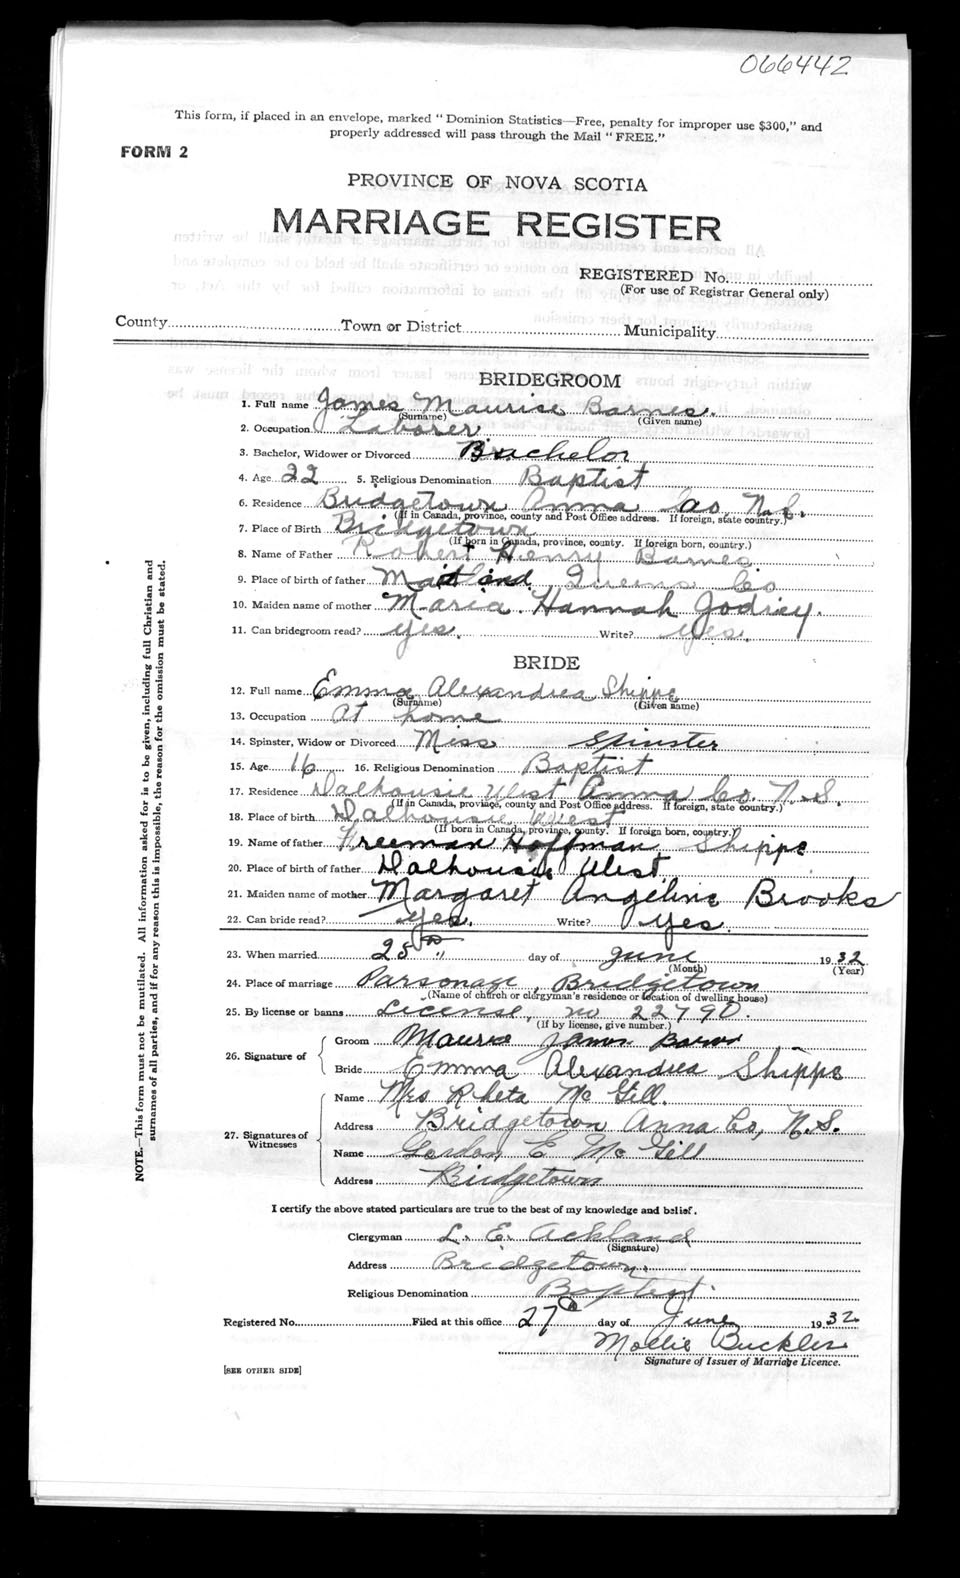 066442
This form, if placed in an envelope, marked "Dominion Statistics—Free, penalty for improper use $300," and
properly addressed will pass through the Mail "FREE."
FORM 2
PROVINCE OF NOVA SCOTIA
MARRIAGE REGISTER
REGISTERED No.
(For use of Registrar General only)
County Town or District Municipality
BRIDEGROOM
1. Full name James Maurise Barnes.
(Surname) (Given name)
2. Occupation Laborer
3. Bachelor, Widower or Divorced Bachelor
4. Age 22 5. Religious Denomination Baptist
6. Residence Bridgetown Anna Co. N.S.
(If in Canada, province, county and Post Office address. If foreign, state country.)
7. Place of Birth Bridgetown
(If born in Canada, province, county. If foreign born, country.)
8. Name of Father Robert Henry Barnes
9. Place of birth of father Maitland Queens Co
10. Maiden name of mother Maria Hannah Godrey.
11. Can bridegroom read? yes. Write? yes.
BRIDE
12. Full name Emma Alexandrea Shippe
(Surname) (Given name)
13. Occupation At home
14. Spinster, Widow or Divorced Miss Spinster
15. Age 16 16. Religious Denomination Baptist
17. Residence Dalhousie West Anna Co. N.S.
(If in Canada, province, county and Post Office address. If foreign, state country.)
18. Place of birth Dalhousie West
(If born in Canada, province, county. If foreign born, country.)
19. Name of father Freeman Hoffman Shippe
20. Place of birth of father Dalhousie West
21. Maiden name of mother Margaret Angeline Brooks
22. Can bride read? Yes. Write? yes.
23. When married 25th day of June 1932
(Month) (Year)
24. Place of marriage Parsonage, Bridgetown
(Name of church or clergyman's residence or location of dwelling house)
25. By license or banns License, no 22790.
(If by license, give number.)
26. Signature of Groom Maurice James Barns
Bride Emma Alexandrea Shippe
27. Signatures of Witnesses
Name Mrs Rheta McGill.
Address Bridgetown Anna Co, N.S.
Name Gordon E McGill
Address Bridgetown
I certify the above stated particulars are true to the best of my knowledge and belief.
Clergyman L. E. Ackland
(Signature)
Address Bridgetown.
Religious Denomination Baptist.
Registered No. Filed at this office 27th day of June 1932
Mollie Buckler
Signature of Issuer of Marriage Licence.
[SEE OTHER SIDE]
NOTE.—This form must not be mutilated. All information asked for is to be given, including full Christian and
surnames of all parties, and if for any reason this is impossible, the reason for the omission must be stated.